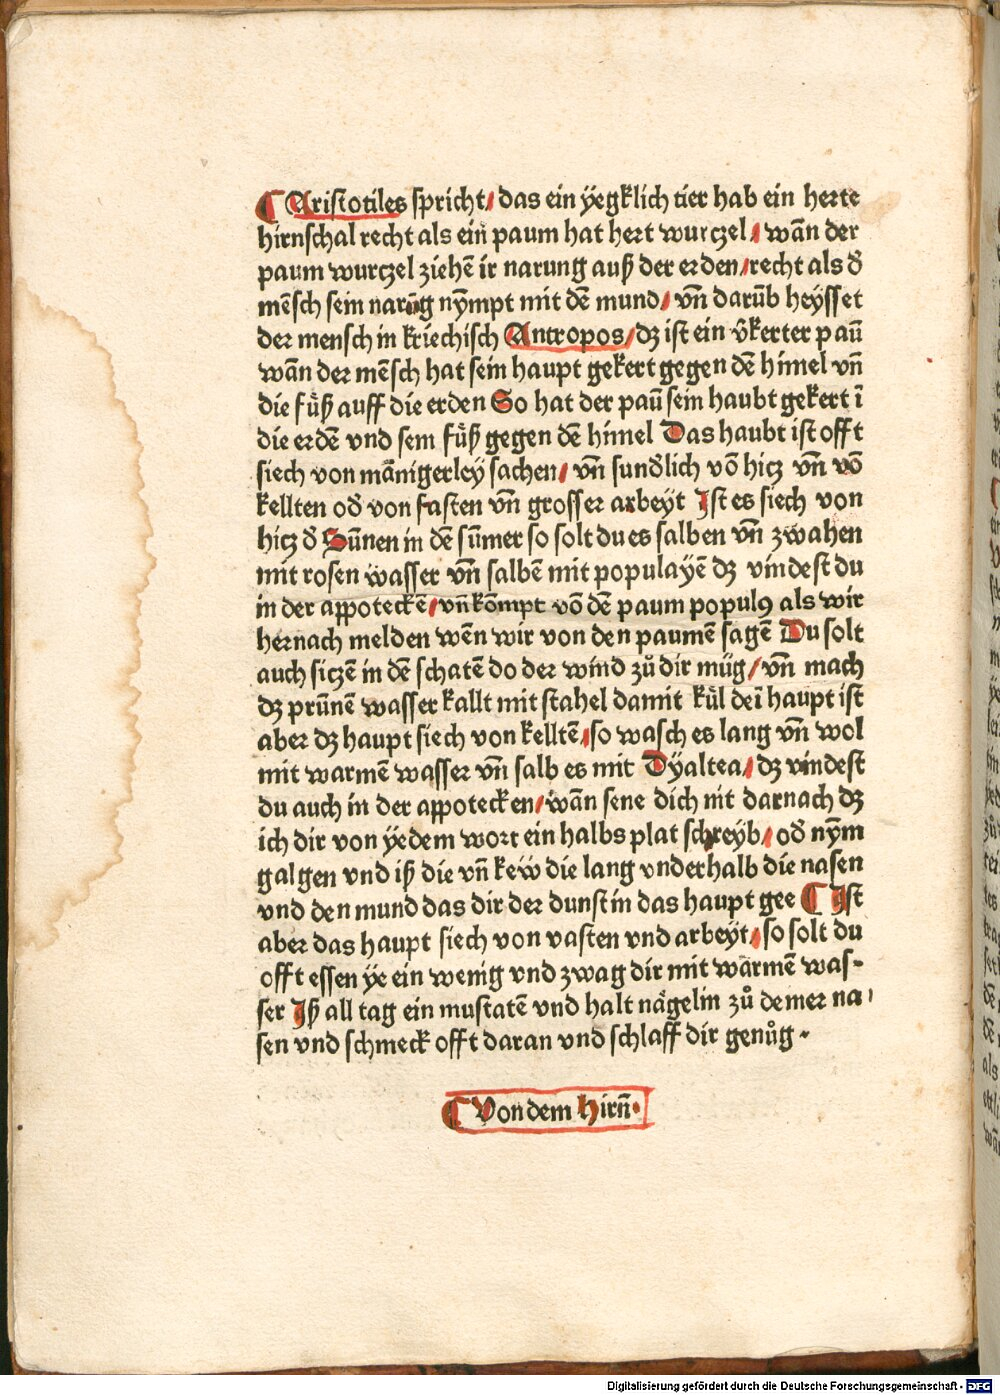 ¶ Aristotiles spricht/ das ein yegklich tier hab ein herte
hirnschal recht als ein paum hat hert wurczel/ wān der
paum wurczel ziehē ir narung auß der erden/ recht als d̄
mēsch sein narūg nȳmpt mit dē mund/ vn̄ darūb heysset
der mensch in kriechisch Antropos/ dz ist ein v̄kerter paū
wān der mēsch hat sein haupt gekert gegen dē himel vn̄
die fuͤß auff die erden So hat der paū sein haubt gekert ī
die erdē vnd sein fuͤß gegen dē himel Das haubt ist offt
siech von mānigerley sachen/ vn̄ sund̄lich vō hicz vn̄ vō
kellten od̄ von fasten vn̄ grosser arbeyt Ist es siech von
hicz d̄ Sūnen in dē sūmer so solt du es salben vn̄ zwahen
mit rosen wasser vn̄ salbē mit populayē dz vindest du
in der appoteckē/ vn̄ kōmpt vō dē paum populꝰ als wir
hernach melden wēn wir von den paumē sagē Du solt
auch siczē in dē schatē do der wind zuͦ dir müg/ vn̄ mach
dz prūnē wasser kallt mit stahel damit kuͤl deī haupt ist
aber dz haupt siech von kelltē/ so wasch es lang vn̄ wol
mit warmē wasser vn̄ salb es mit Dyaltea/ dz vindest
du auch in der appotecken/ wān sene dich nit darnach dz
ich dir von yedem wort ein halbs plat schreyb/ od̄ nȳm
galgen vnd iß die vn̄ kew die lang vnderhalb die nasen
vnd den mund das dir der dunst in das haupt gee ¶ Ist
aber das haupt siech von vasten vnd arbeyt/ so solt du
offt essen ye ein wenig vnd zwag dir mit warmē was-
ser Iß all tag ein mustatē vnd halt nägelin zuͦ deiner na-
sen vnd schmeck offt daran vnd schlaff dir genuͦg.
¶ Von dem hirn̄.
Digitalisierung gefördert durch die Deutsche Forschungsgemeinschaft - DFG